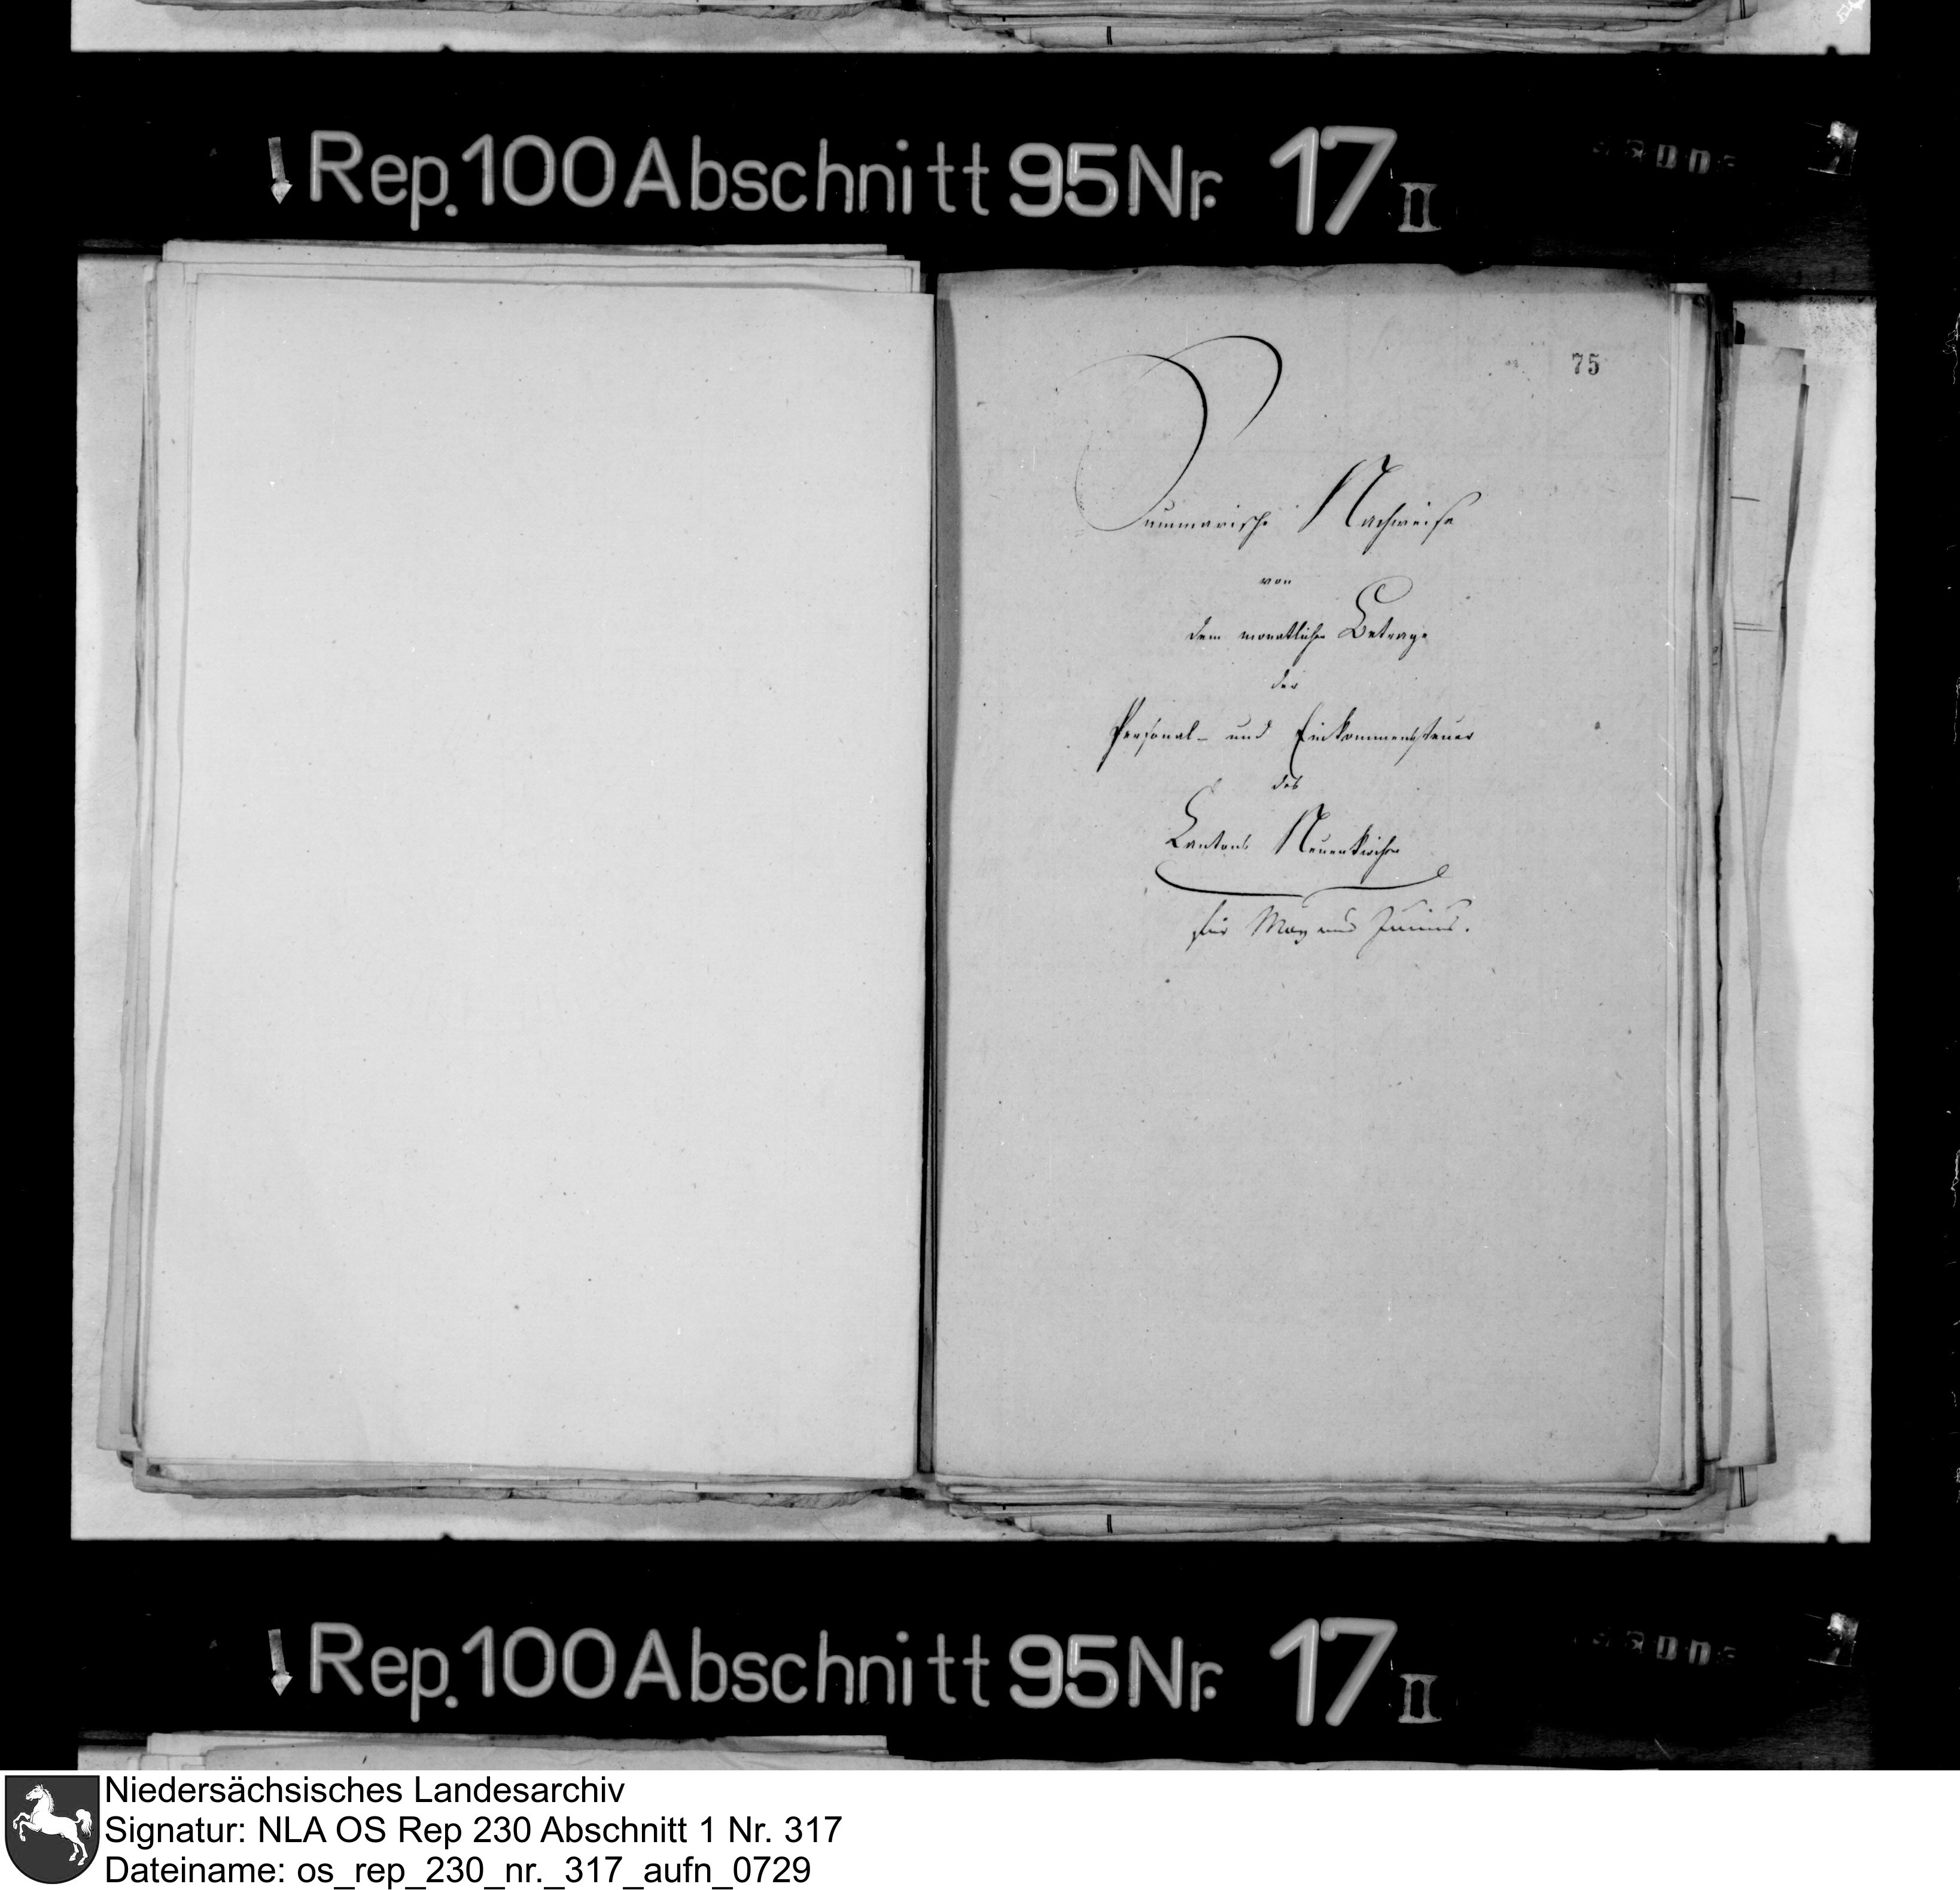 Rep. 100 Abschnitt 95 Nr. 17 II
75
Summarische Nachweise
von
dem monatlichen Betrage
der
Personal- und Einkommensteuer
des
Cantons Neuenkirchen
für May und Junius.
Rep. 100 Abschnitt 95 Nr. 17 II
Niedersächsisches Landesarchiv
Signatur: NLA OS Rep 230 Abschnitt 1 Nr. 317
Dateiname: os_rep_230_nr._317_aufn_0729